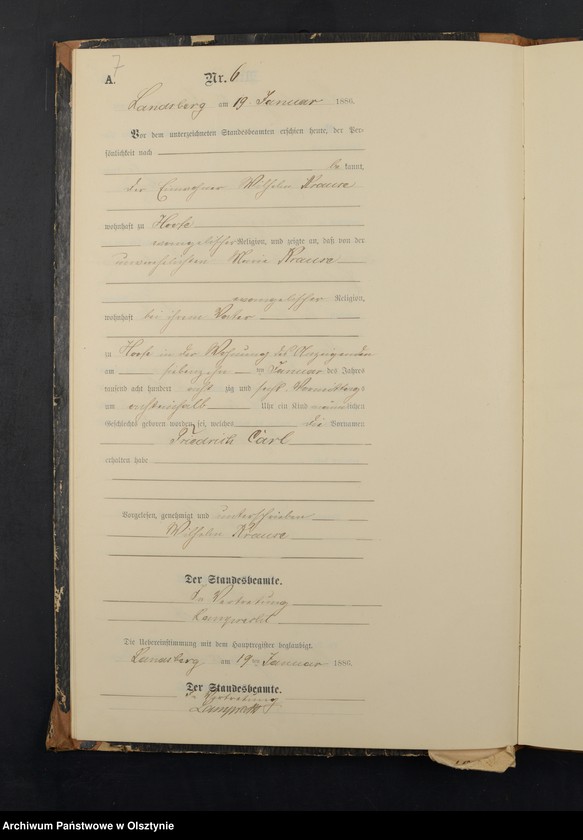 7
A.
Nr. 6
Landsberg am 19 Januar 1886.
Vor dem unterzeichneten Standesbeamten erschien heute, der Per-
sönlichkeit nach
be kannt,
der Einwohner Wilhelm Krause
wohnhaft zu Hoofe
evangelischer Religion, und zeigte an, daß von der
unverehelichten Maria Krause
evangelischer Religion,
wohnhaft bei ihrem Vater
zu Hoofe in der Wohnung des Anzeigenden
am siebzehn ten Januar des Jahres
tausend acht hundert acht zig und sechs Vormittags
um Uhr ein Kind männlichen
Geschlechts geboren worden sei, welches die Vornamen
Friedrich Carl
erhalten habe
Vorgelesen, genehmigt und unterschrieben
Wilhelm Krause
Der Standesbeamte.
In Vertretung
Lamprecht
Die Uebereinstimmung mit dem Hauptregister beglaubigt.
Landsberg am 19ten Januar 1886.
Der Standesbeamte.
In Vertretung
Lamprecht
Archiwum Państwowe w Olsztynie